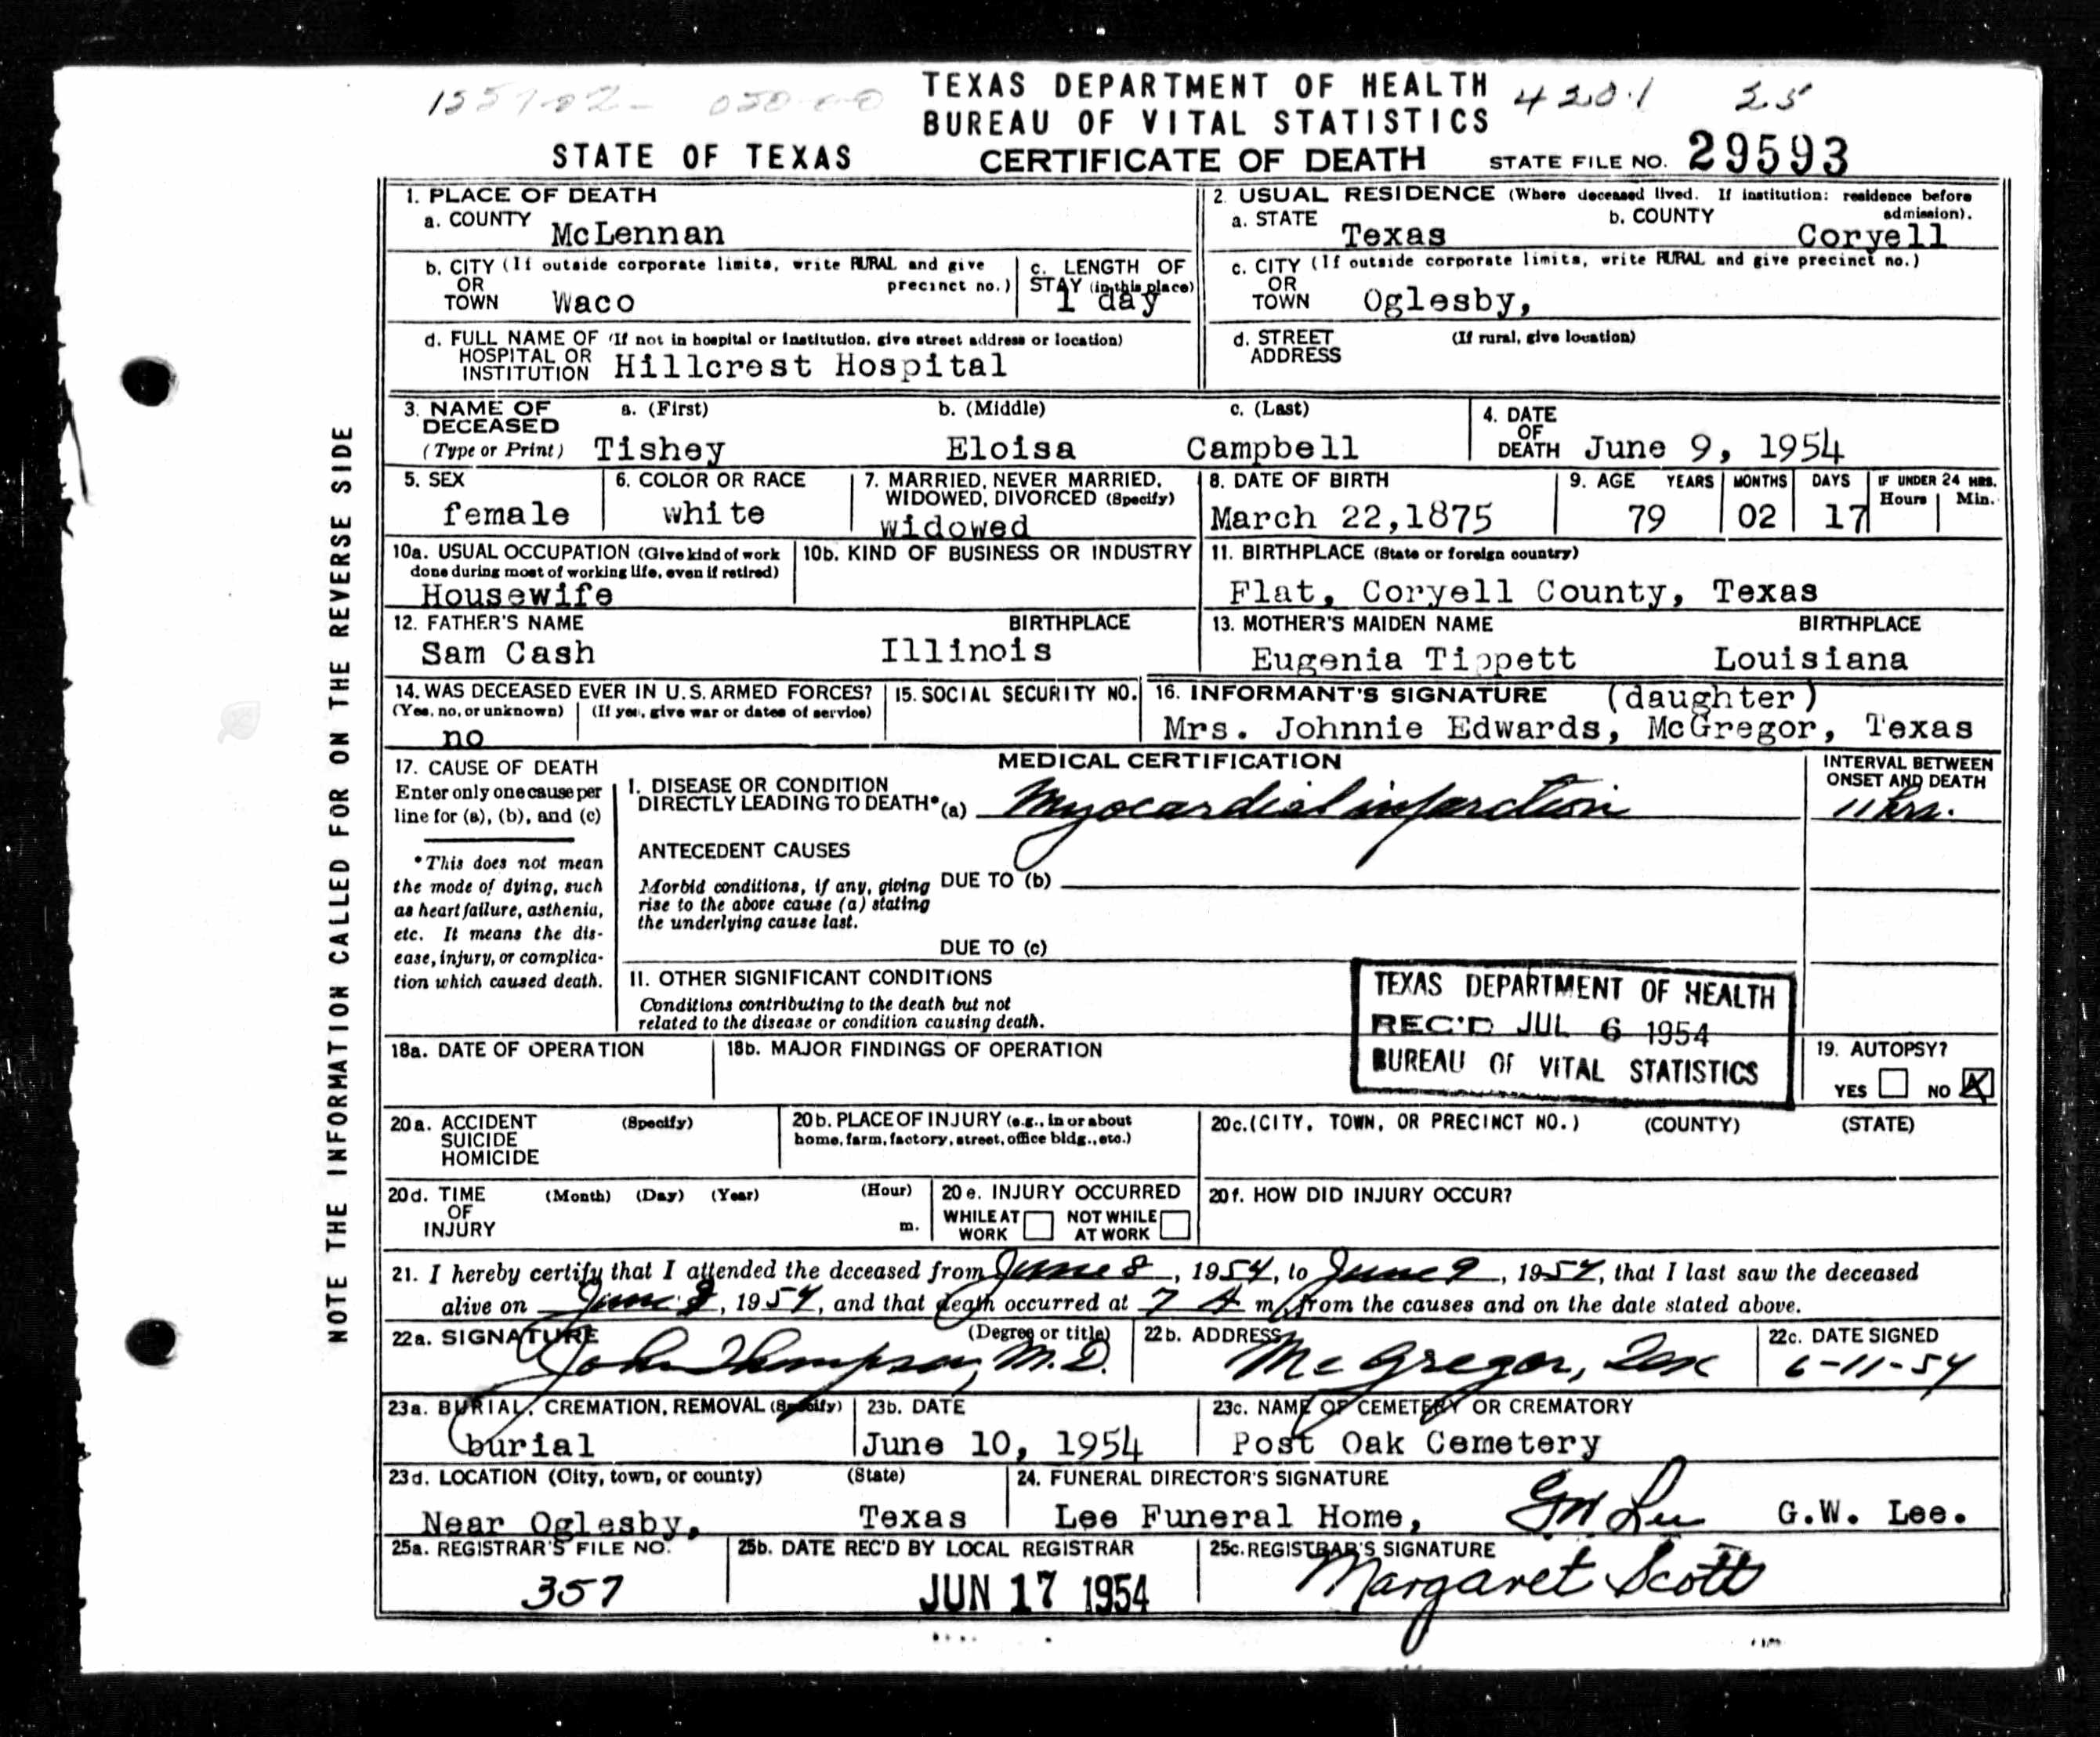 155702- 050-0-0
TEXAS DEPARTMENT OF HEALTH 4201 25
BUREAU OF VITAL STATISTICS
STATE OF TEXAS CERTIFICATE OF DEATH STATE FILE NO. 29593
NOTE THE INFORMATION CALLED FOR ON THE REVERSE SIDE
1. PLACE OF DEATH
a. COUNTY McLennan
2. USUAL RESIDENCE (Where deceased lived. If institution: residence before admission).
a. STATE Texas b. COUNTY Coryell
b. CITY (If outside corporate limits, write RURAL and give precinct no.)
OR
TOWN Waco
c. LENGTH OF
STAY (in this place)
1 day
c. CITY (If outside corporate limits, write RURAL and give precinct no.)
OR
TOWN Oglesby,
d. FULL NAME OF (If not in hospital or institution, give street address or location)
HOSPITAL OR
INSTITUTION Hillcrest Hospital
d. STREET (If rural, give location)
ADDRESS
3. NAME OF DECEASED a. (First) b. (Middle) c. (Last)
(Type or Print) Tishey Eloisa Campbell
4. DATE
OF
DEATH June 9, 1954
5. SEX
female
6. COLOR OR RACE
white
7. MARRIED, NEVER MARRIED,
WIDOWED, DIVORCED (Specify)
widowed
8. DATE OF BIRTH
March 22,1875
9. AGE YEARS MONTHS DAYS IF UNDER 24 HRS.
Hours Min.
79 02 17
10a. USUAL OCCUPATION (Give kind of work
done during most of working life, even if retired)
Housewife
10b. KIND OF BUSINESS OR INDUSTRY
11. BIRTHPLACE (State or foreign country)
Flat, Coryell County, Texas
12. FATHER'S NAME BIRTHPLACE
Sam Cash Illinois
13. MOTHER'S MAIDEN NAME BIRTHPLACE
Eugenia Tippett Louisiana
14. WAS DECEASED EVER IN U.S. ARMED FORCES?
(Yes, no, or unknown) (If yes, give war or dates of service)
no
15. SOCIAL SECURITY NO.
16. INFORMANT'S SIGNATURE (daughter)
Mrs. Johnnie Edwards, McGregor, Texas
17. CAUSE OF DEATH
Enter only one cause per
line for (a), (b), and (c)
*This does not mean
the mode of dying, such
as heart failure, asthenia,
etc. It means the dis-
ease, injury, or complica-
tion which caused death.
MEDICAL CERTIFICATION
INTERVAL BETWEEN
ONSET AND DEATH
I. DISEASE OR CONDITION
DIRECTLY LEADING TO DEATH* (a) Myocardial infarction 11 hrs.
ANTECEDENT CAUSES
Morbid conditions, if any, giving
rise to the above cause (a) stating
the underlying cause last.
DUE TO (b)
DUE TO (c)
II. OTHER SIGNIFICANT CONDITIONS
Conditions contributing to the death but not
related to the disease or condition causing death.
TEXAS DEPARTMENT OF HEALTH
REC'D JUL 6 1954
BUREAU OF VITAL STATISTICS
18a. DATE OF OPERATION
18b. MAJOR FINDINGS OF OPERATION
19. AUTOPSY?
YES NO X
20a. ACCIDENT (Specify)
SUICIDE
HOMICIDE
20b. PLACE OF INJURY (e.g., in or about
home, farm, factory, street, office bldg., etc.)
20c. (CITY, TOWN, OR PRECINCT NO.) (COUNTY) (STATE)
20d. TIME (Month) (Day) (Year) (Hour)
OF
INJURY m.
20e. INJURY OCCURRED
WHILE AT WORK NOT WHILE AT WORK
20f. HOW DID INJURY OCCUR?
21. I hereby certify that I attended the deceased from June 8, 1954, to June 9, 1954, that I last saw the deceased
alive on June 9, 1954, and that death occurred at 7 A m., from the causes and on the date stated above.
22a. SIGNATURE (Degree or title)
John Thompson, M.D.
22b. ADDRESS
McGregor, Tex
22c. DATE SIGNED
6-11-54
23a. BURIAL, CREMATION, REMOVAL (Specify)
burial
23b. DATE
June 10, 1954
23c. NAME OF CEMETERY OR CREMATORY
Post Oak Cemetery
23d. LOCATION (City, town, or county) (State)
Near Oglesby, Texas
24. FUNERAL DIRECTOR'S SIGNATURE
Lee Funeral Home, GW Lee G.W. Lee.
25a. REGISTRAR'S FILE NO.
357
25b. DATE REC'D BY LOCAL REGISTRAR
JUN 17 1954
25c. REGISTRAR'S SIGNATURE
Margaret Scott